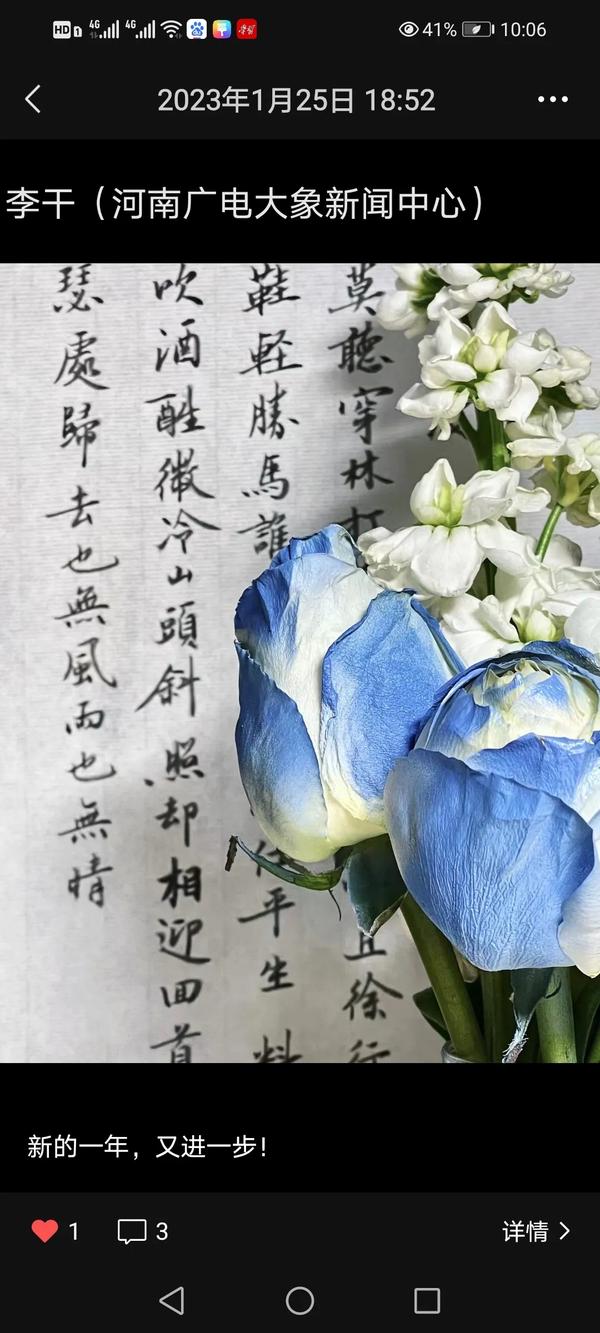 HD 4G 4G 41% 10:06
2023年1月25日 18:52
李干（河南广电大象新闻中心）
莫聽穿林打 且徐行
鞋軽勝馬誰 任平生 料
吹酒醒微冷山頭斜照却相迎回首
瑟處歸去也無風雨也無晴
新的一年，又进一步！
1 3 详情